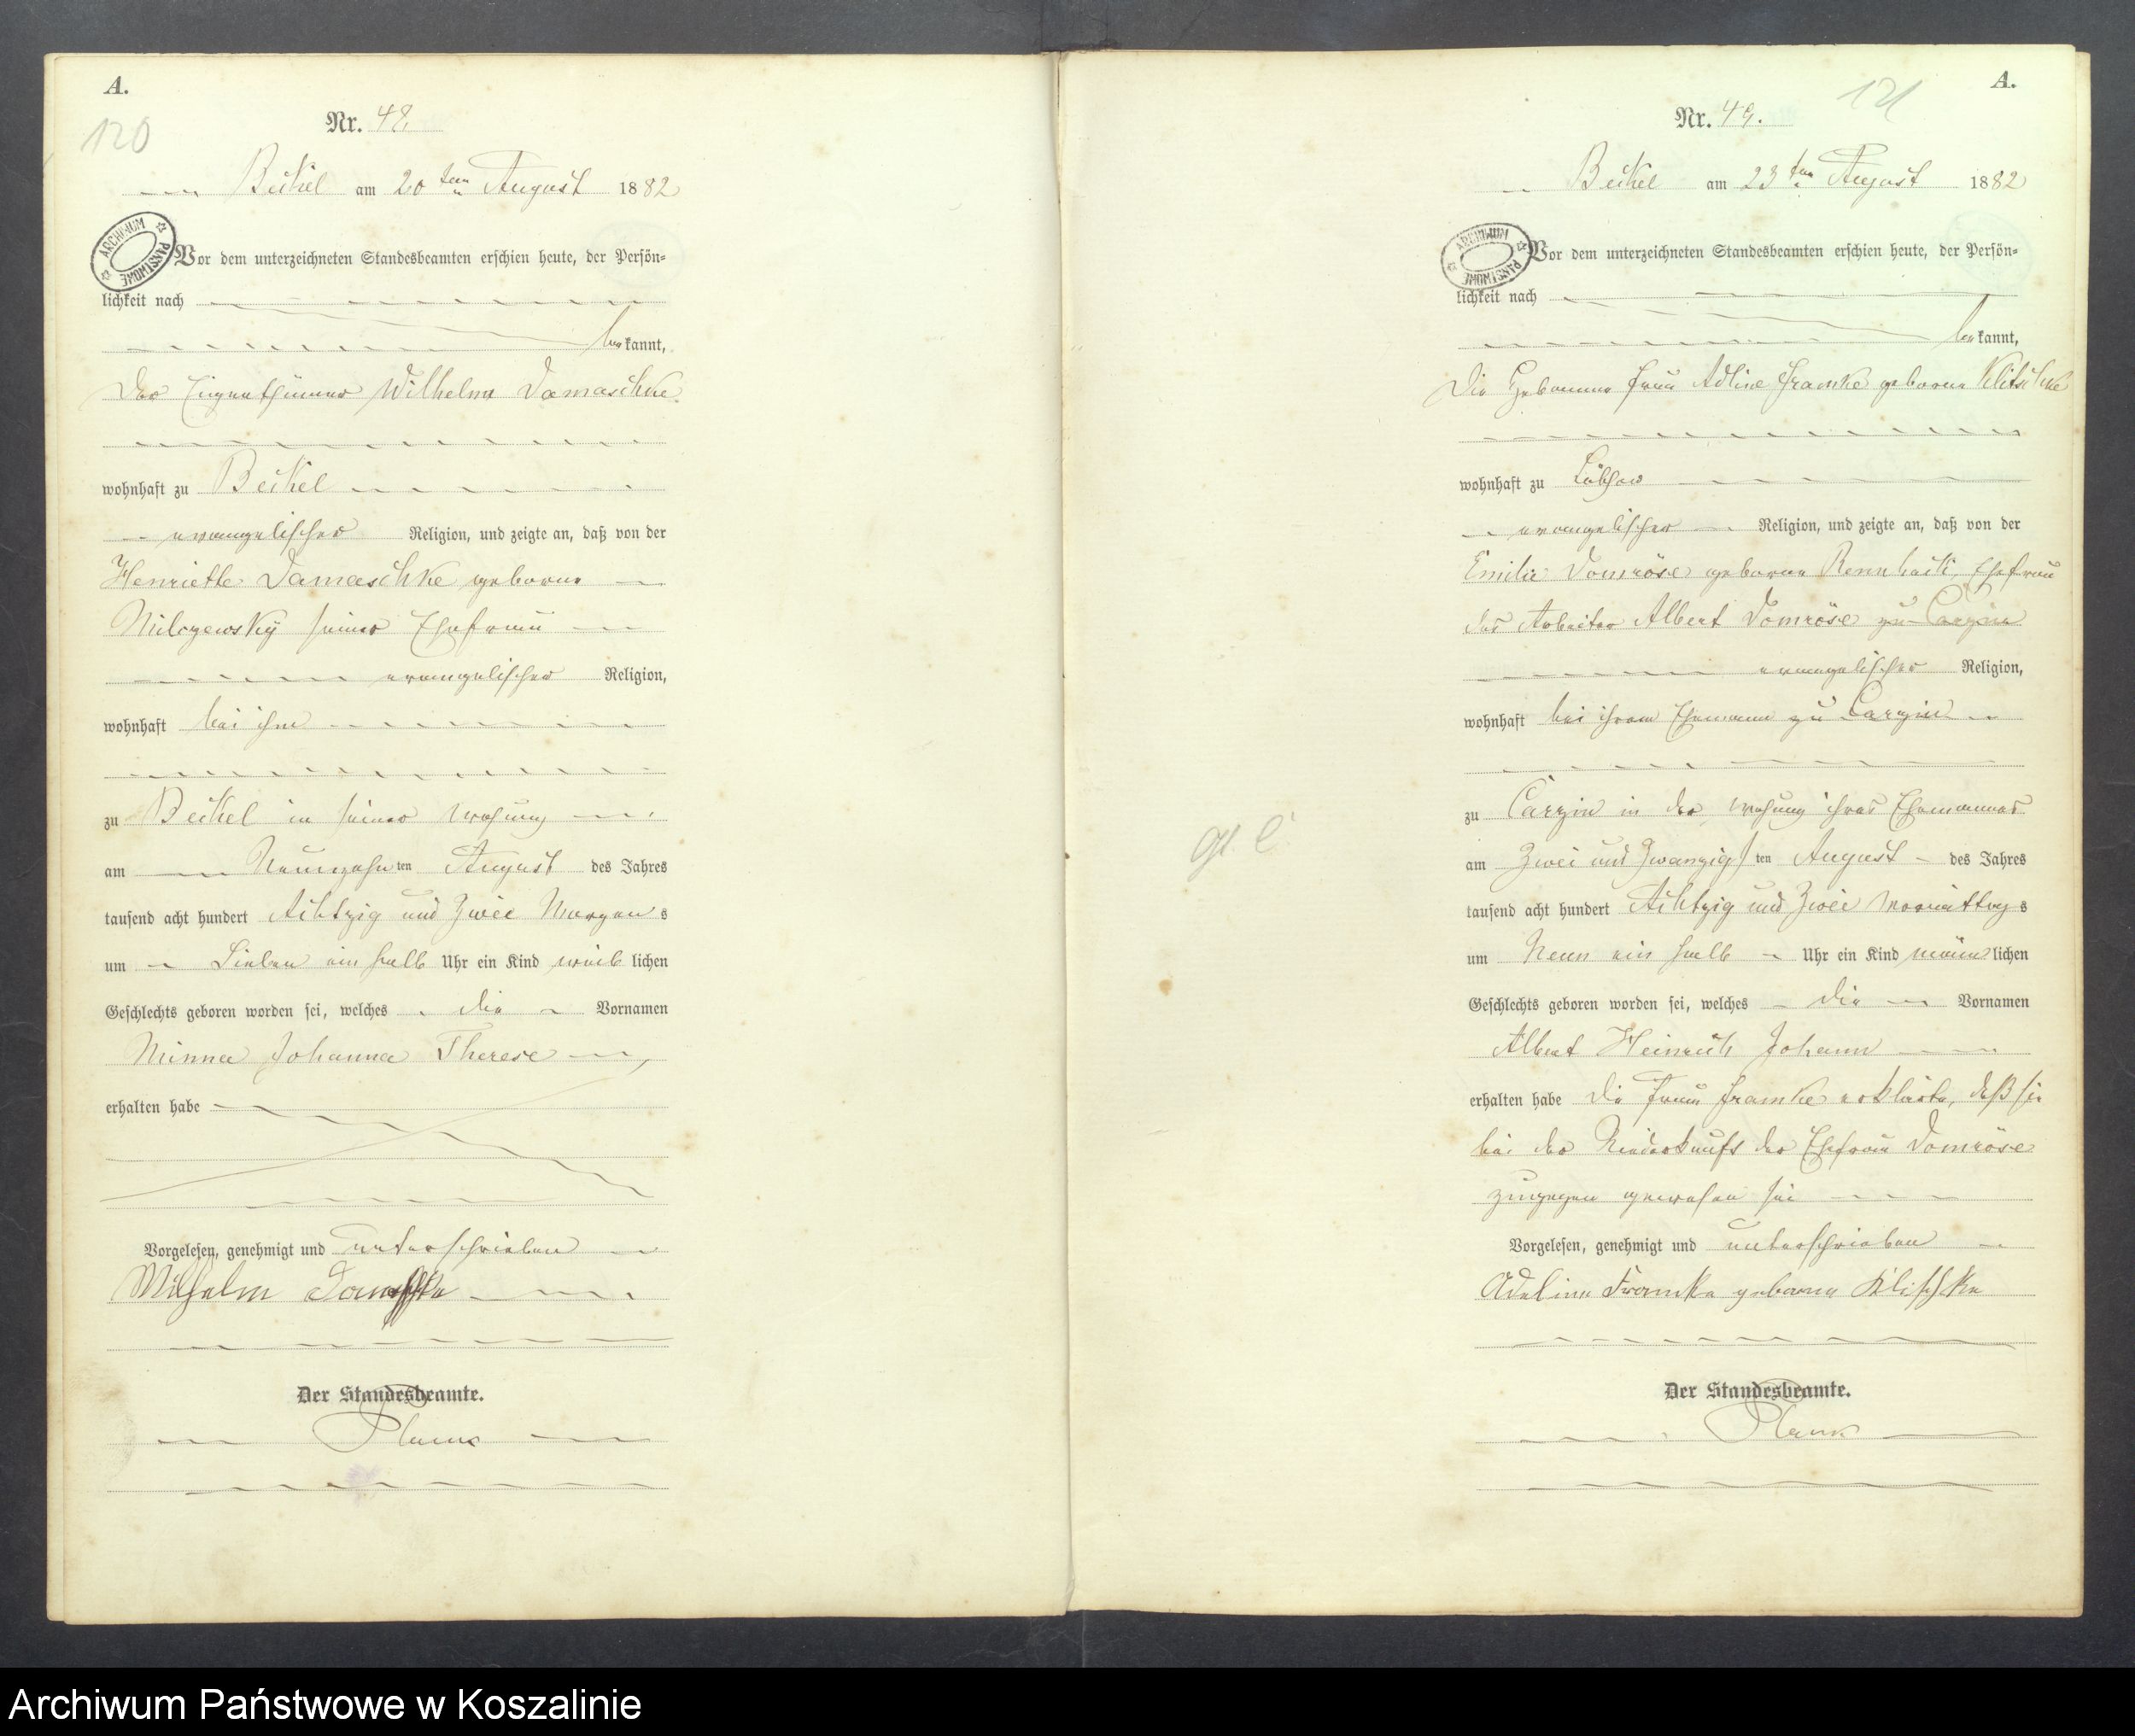 A.
120
Nr. 48.
Beckel am 20ten August 1882
ARCHIWUM PAŃSTWOWE
Vor dem unterzeichneten Standesbeamten erschien heute, der Persön-
lichkeit nach
bekannt,
Der Eigenthümer Wilhelm Damaschke
wohnhaft zu Beckel
evangelischer Religion, und zeigte an, daß von der
Henriette Damaschke geborne
seiner Ehefrau
evangelischer Religion,
wohnhaft bei ihm
zu Beckel in seiner Wohnung
am Neunzehnten August des Jahres
tausend acht hundert Achtzig und Zwei Morgens
um Sieben ein halb Uhr ein Kind weiblichen
Geschlechts geboren worden sei, welches die Vornamen
Minna Johanna Therese
erhalten habe
Vorgelesen, genehmigt und unterschrieben
Wilhelm Damaschke
Der Standesbeamte.
A.
121
Nr. 49.
Beckel am 23ten August 1882
ARCHIWUM PAŃSTWOWE
Vor dem unterzeichneten Standesbeamten erschien heute, der Persön-
lichkeit nach
bekannt,
Die Hebamme Frau Adline Framke geborne Klitschke
wohnhaft zu
evangelischer Religion, und zeigte an, daß von der
Emilie Domröse geborne Rennhack, Ehefrau
des Arbeiter Albert Domröse zu Carzin
evangelischer Religion,
wohnhaft bei ihrem Ehemann zu Carzin
zu Carzin in der Wohnung ihres Ehemannes
am Zwei und Zwanzigsten August des Jahres
tausend acht hundert Achtzig und Zwei Vormittags
um Neun ein halb Uhr ein Kind männlichen
Geschlechts geboren worden sei, welches die Vornamen
Albert Heinrich Johann
erhalten habe Die Frau Framke erklärte, daß sie
bei der Niederkunft der Ehefrau Domröse
zugegen gewesen sei
Vorgelesen, genehmigt und unterschrieben
Adeline Framke geborne Klischke
Der Standesbeamte.
Archiwum Państwowe w Koszalinie